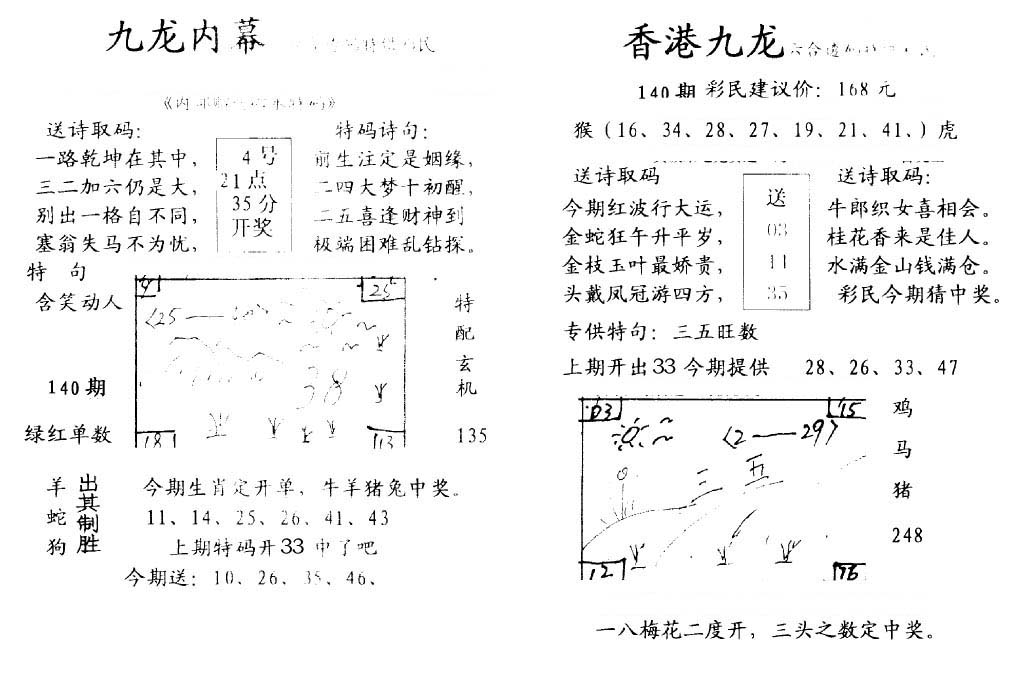 九龙内幕
送诗取码：
一路乾坤在其中，
三二加六仍是大，
别出一格自不同，
塞翁失马不为忧，
4号
21点
35分
开奖
特码诗句：
前生注定是姻缘，
二四大梦十初醒，
二五喜逢财神到
极端困难乱钻探。
特 句
含笑动人
140期
绿红单数
25
〈25——
38
18
113
特
配
玄
机
135
羊
蛇
狗
出其制胜
今期生肖定开单，牛羊猪兔中奖。
11、14、25、26、41、43
上期特码开33 中了吧
今期送：10、26、35、46、
香港九龙
140期 彩民建议价：168元
猴（16、34、28、27、19、21、41、）虎
送诗取码
今期红波行大运，
金蛇狂午升平岁，
金枝玉叶最娇贵，
头戴凤冠游四方，
送
03
11
35
送诗取码：
牛郎织女喜相会。
桂花香来是佳人。
水满金山钱满仓。
彩民今期猜中奖。
专供特句：三五旺数
上期开出33 今期提供 28、26、33、47
03
15
〈2——29〉
三 五
12
16
鸡
马
猪
248
一八梅花二度开，三头之数定中奖。